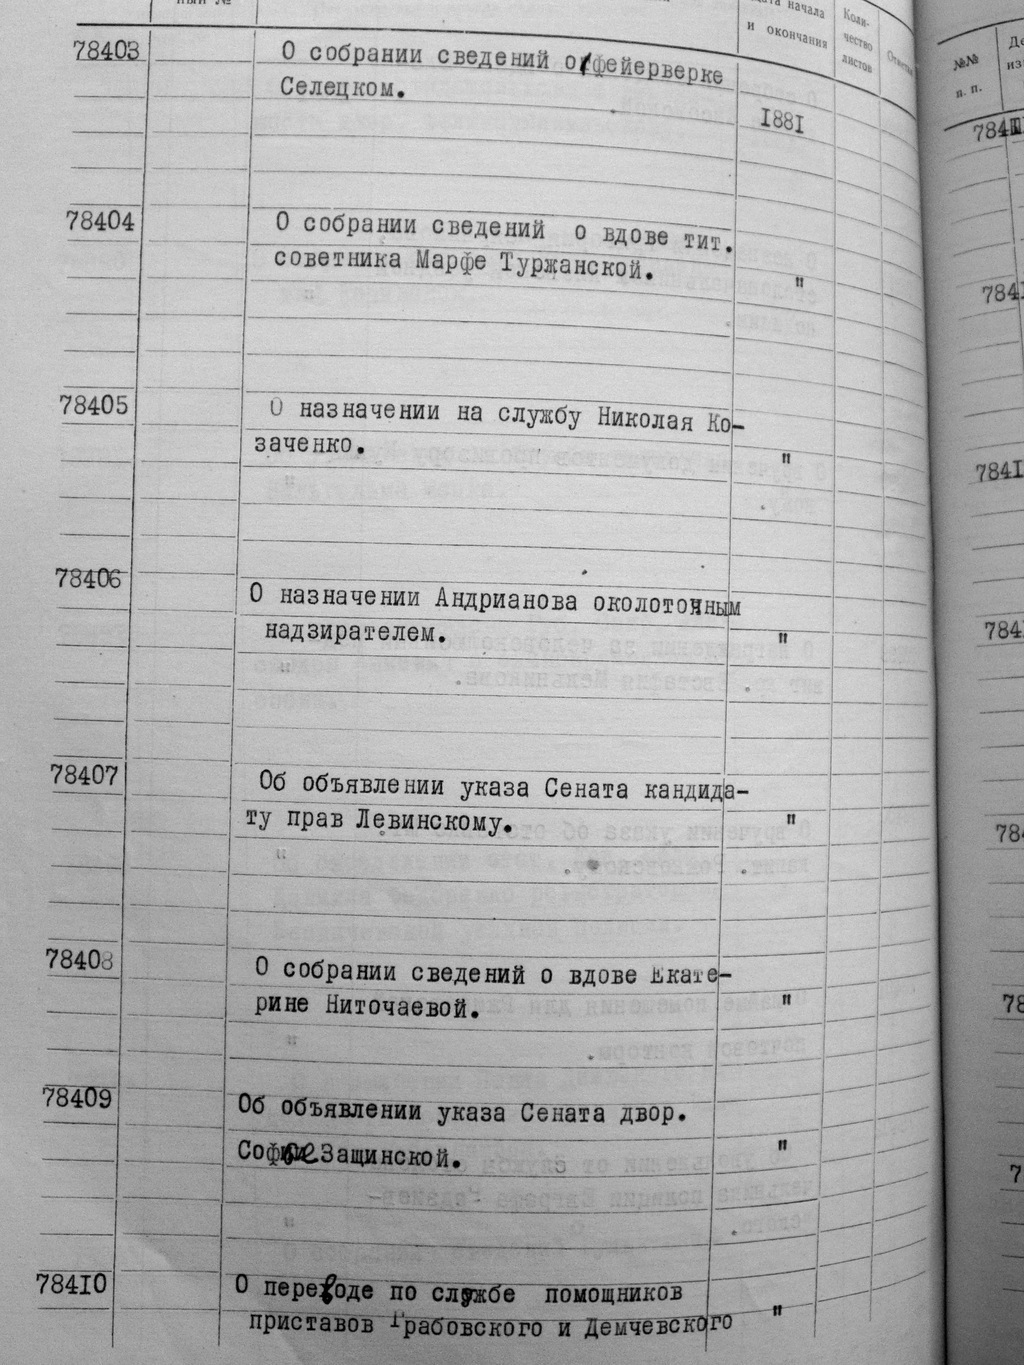 ный №
дата начала
и окончания
Коли-
чество
листов
78403
О собрании сведений о фейерверке
Селецком.
1881
78404
О собрании сведений о вдове тит.
советника Марфе Туржанской.
"
78405
О назначении на службу Николая Ко-
заченко.
"
78406
О назначении Андрианова околоточным
надзирателем.
"
78407
Об объявлении указа Сената кандида-
ту прав Левинскому.
"
78408
О собрании сведений о вдове Екате-
рине Ниточаевой.
"
78409
Об объявлении указа Сената двор.
Софие Защинской.
"
78410
О переводе по службе помощников
приставов Грабовского и Демчевского
"
№№
п. п.